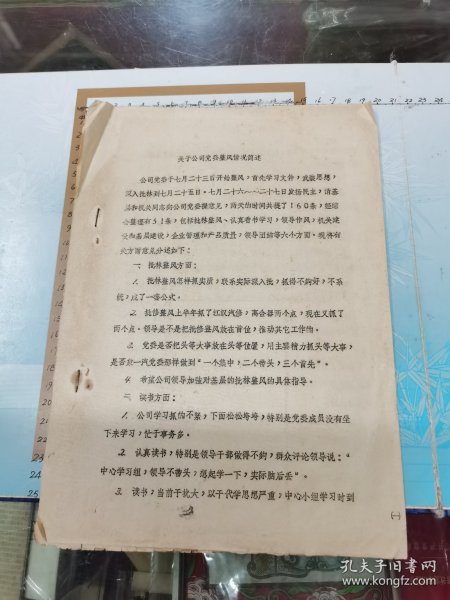 关于公司党委整风情况简述
公司党委于七月二十三日开始整风，首先学习文件，武装思想，
深入批林到七月二十五日。七月二十六～二十七日发扬民主，请基
层和机关同志向公司党委提意见，两天的时间共提了160条，经综
合整理有51条，包括批林整风、认真看书学习，领导作风，机关建
设和基层建设，企业管理和产品质量，领导团结等六个方面。现将有
关方面意见分述如下：
一、批林整风方面：
1. 批林整风怎样抓实质，联系实际深入批，抓得不够好，不系
统，成了一套公式。
2. 批修整风上半年抓了江汉汽修，离合器两个点，现在又抓了
两个点。领导是不是把批修整风放在首位，推动其它工作的。
3. 党委是否把头等大事放在头等位置，用主要精力抓头等大事，
是否象一汽党委那样做到“一个集中，二个带头，三个首先”。
4. 希望公司领导加强对基层的批林整风的具体指导。
二、读书方面：
1. 公司学习抓的不紧，下面松松垮垮，特别是党委成员没有坐
下来学习，忙于事务多。
2. 认真读书，特别是领导干部做得不够，群众评论领导说：“
中心学习组，领导不带头，落起学一下，实际脑后丢”。
3. 读书，当前干扰大，以干代学思想严重，中心小组学习时到
(一)
孔夫子旧书网
www.kongfz.com